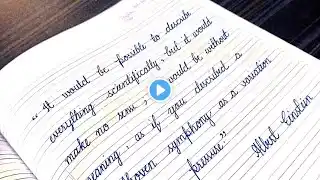 “It would be possible to describe
everything scientifically, but it would
make no sense; it would be without
meaning, as if you described a
Beethoven symphony as a variation
pressure."
Albert Einstein